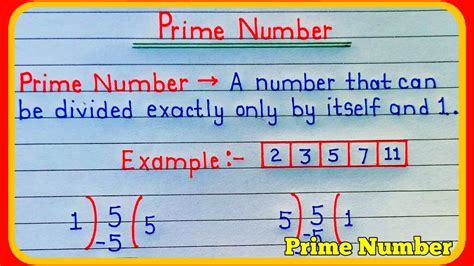 Prime Number
Prime Number → A number that can
be divided exactly only by itself and 1.
Example:- 2 3 5 7 11
1) 5 (5 5) 5 (1
-5 -5
Prime Number